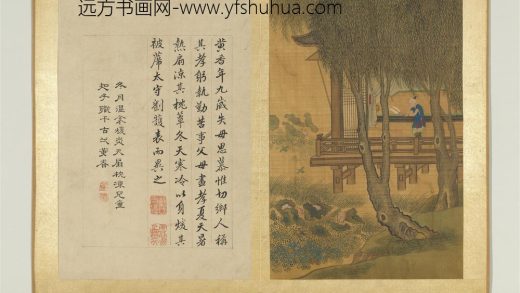 远方书画网-www.yfshuhua.com
黃香年九歲失母思慕惟切鄉人稱
其孝躬執勤苦事父母盡孝夏天暑
熱扇涼其枕簟冬天寒冷以身煖其
被蓆太守劉護表而異之
冬月溫衾煖炎天扇枕涼兒童
知子職千古一黃香